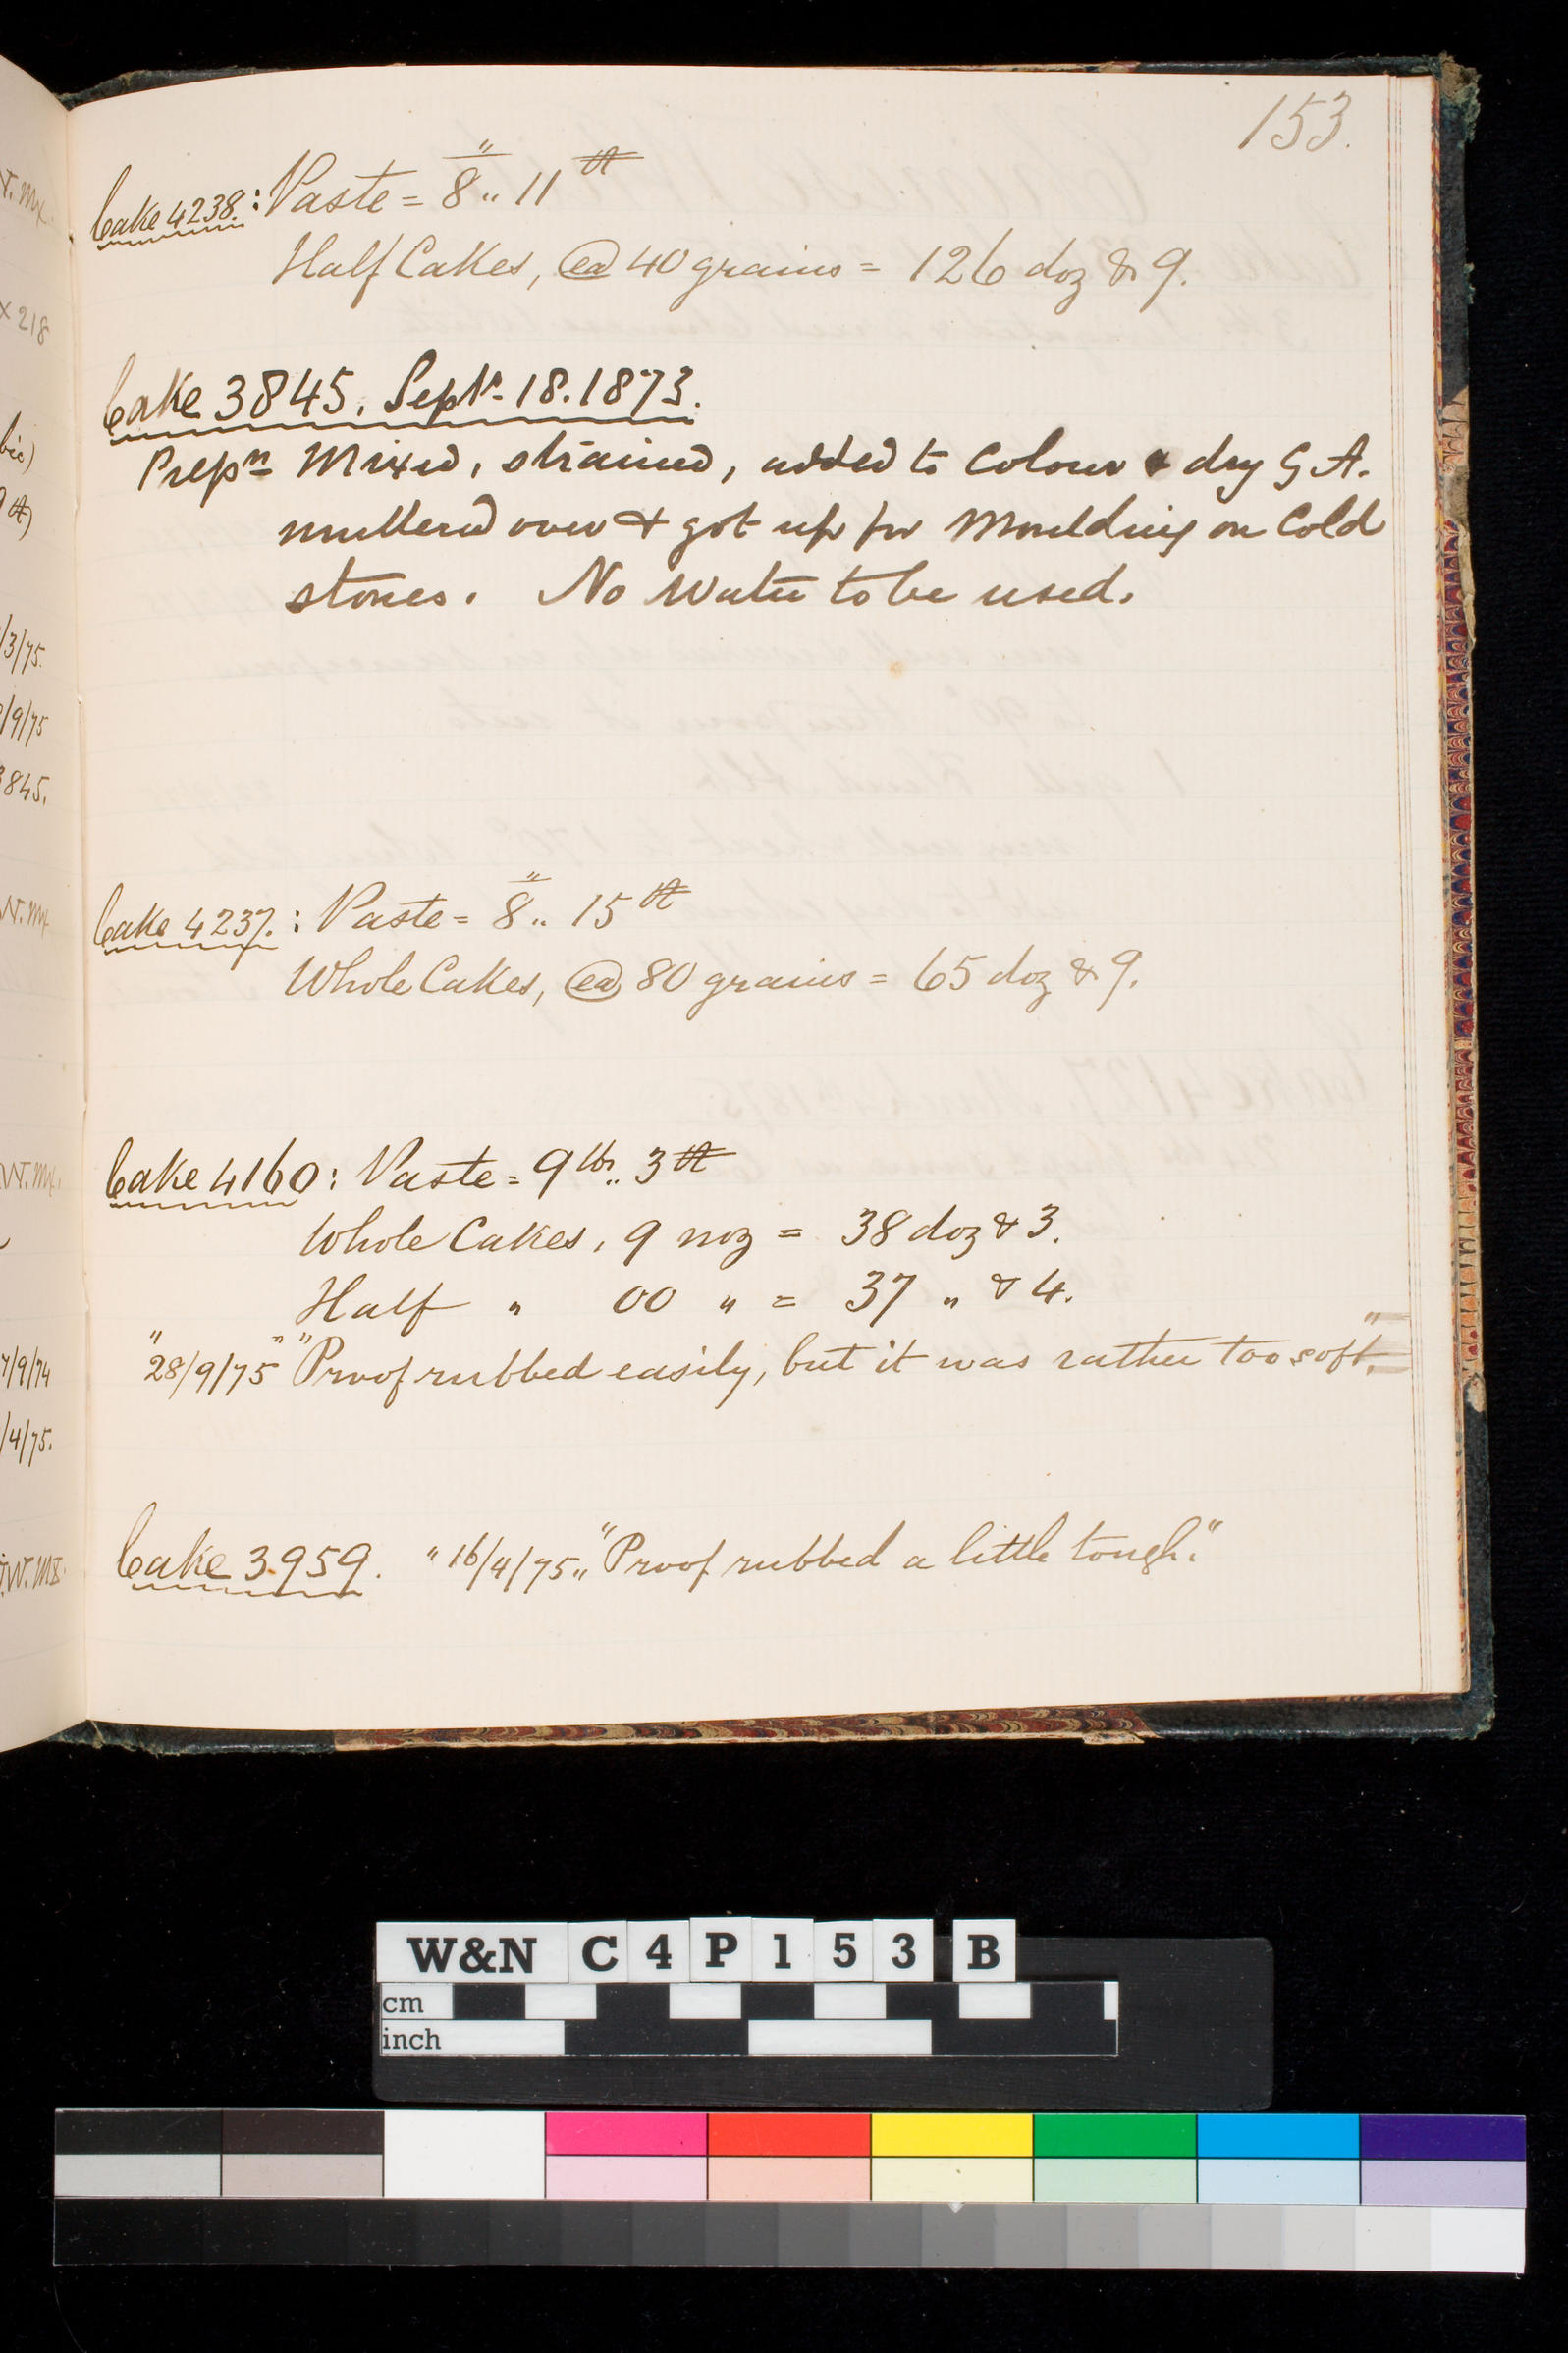 153.
Cake 4238: Paste = 8 " 11
Half Cakes, @ 40 grains = 126 doz & 9.
Cake 3845. Septr. 18. 1873.
Prepn Mixed, strained, added to Colour & dry G A.
mullered over & got up for Moulding on Cold
stones. No Water to be used.
Cake 4237: Paste = 8 " 15
Whole Cakes, @ 80 grains = 65 doz & 9.
Cake 4160: Paste = 9 lbs " 3
Whole Cakes, 9 noz = 38 doz & 3.
Half " 00 " = 37 " & 4.
"28/9/75" "Proof rubbed easily, but it was rather too soft."
Cake 3959. "16/4/75" "Proof rubbed a little tough."
x 218
/3/75.
/9/75
3845.
7/9/74
/4/75.
W&N C4P153 B
cm
inch